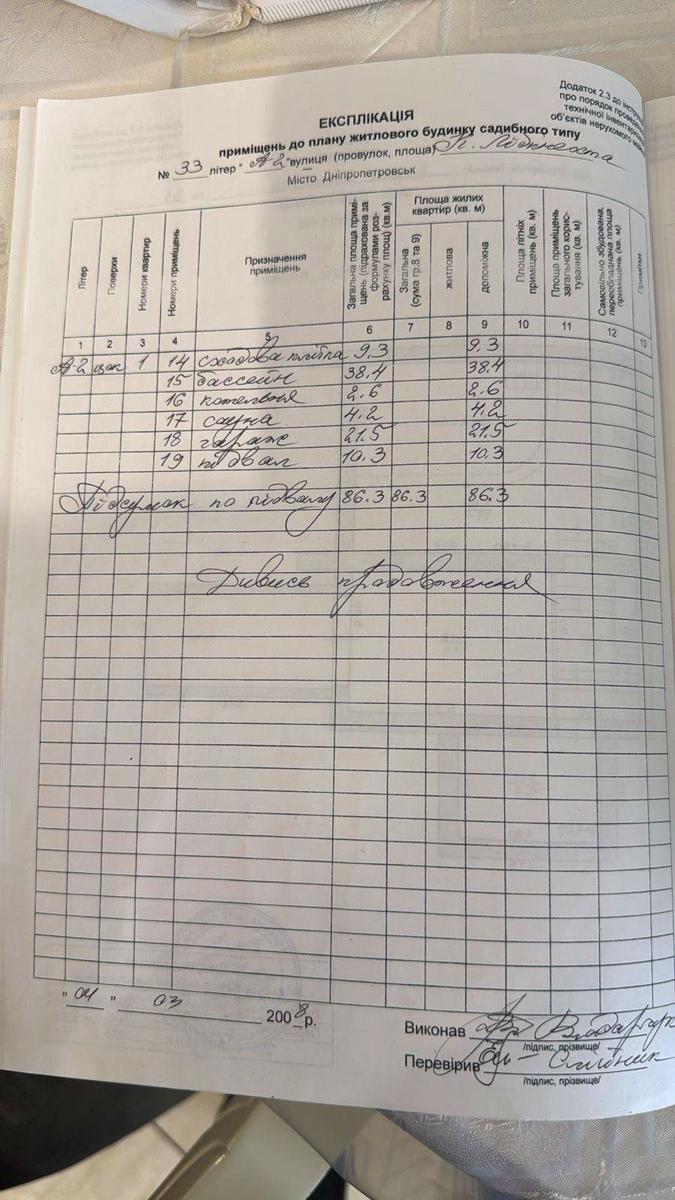 Додаток 2.3 до
про порядок
технічної
об'єктів нерухомого
ЕКСПЛІКАЦІЯ
приміщень до плану житлового будинку садибного типу
№ 33 літер " А-2 " вулиця (провулок, площа)
Місто Дніпропетровськ
Літер
Поверхи
Номери квартир
Номери приміщень
Призначення приміщень
Загальна площа приміщень (підрахована за формулами розрахунку площ) (кв.м)
Площа жилих квартир (кв. м)
Загальна (сума гр.8 та 9)
житлова
допоміжна
Площа літніх приміщень (кв. м)
Площа приміщень загального користування (кв. м)
Самовільно збудована, переобладнана площа приміщень (кв. м)
Примітки
1 2 3 4 5 6 7 8 9 10 11 12 13
А-2 цок 1 14 сходова клітка 9.3 9.3
15 бассейн 38.4 38.4
16 котельня 2.6 2.6
17 сауна 4.2 4.2
18 гараж 21.5 21.5
19 підвал 10.3 10.3
Підсумок по підвалу 86.3 86.3 86.3
Дивись продовження
" 04 " 03 2008 р.
Виконав
/підпис, прізвище/
Перевірив
/підпис, прізвище/